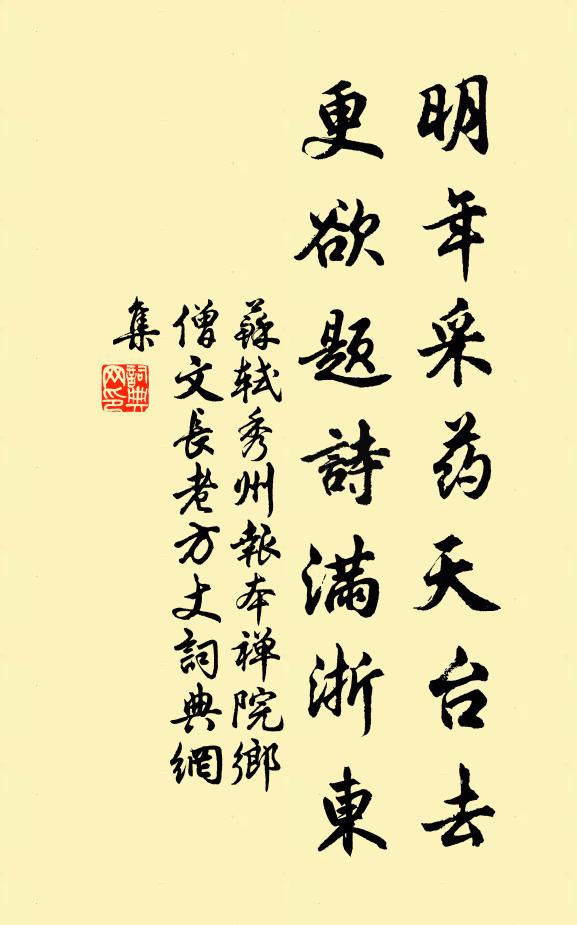 明年采药天台去
更欲題詩滿浙東
蘇軾秀州報本禅院鄉
僧文長老方丈詞典網
集
詞典
网印